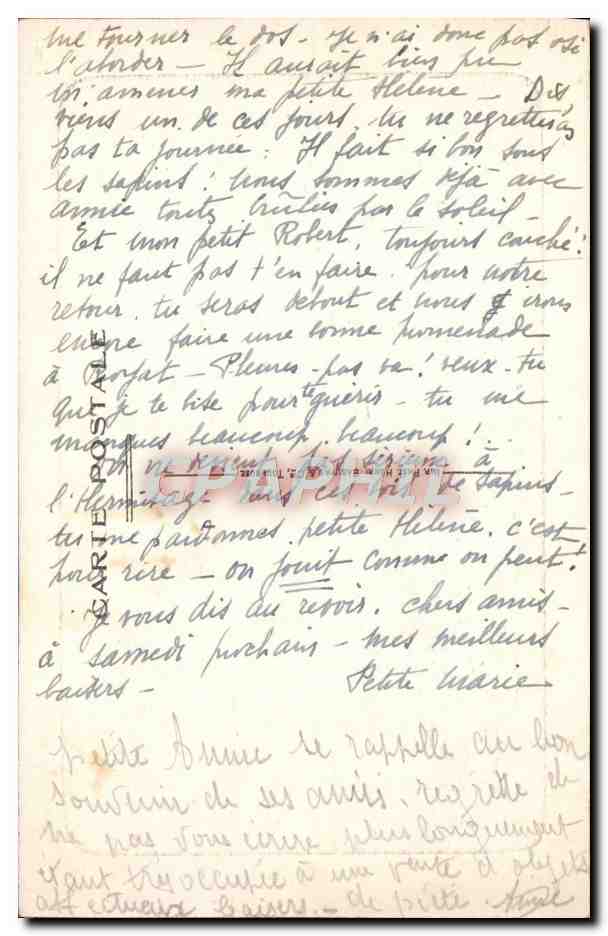 me tourner le dos - Je n'ai donc pas osé
l'aborder - Il aurait bien pu
m'amener ma petite Hélène - Dis,
viens un de ces jours, tu ne regretteras
pas ta journée. Il fait si bon sous
les sapins! Nous sommes déjà avec
Annie toutes brûlées par le soleil -
Et mon petit Robert, toujours couché!
il ne faut pas t'en faire. pour notre
retour, tu seras debout et nous irons
encore faire une bonne promenade
à Royat - Pleures-pas va! veux-tu
que je te bise pour te guérir - tu me
manques beaucoup, beaucoup!
On ne devient pas sérieux à
l'Hermitage sous ces bois de sapins -
tu me pardonnes, petite Hélène, c'est
pour rire - on jouit comme on peut!
Je vous dis au revoir, chers amis -
à samedi prochain - mes meilleurs
baisers - Petite Marie
petite Annie se rappelle au bon
souvenir de ses amis, regrette de
ne pas vous écrire plus longuement
étant très occupée à une vente d'objets
de piété. Annie
affectueux baisers. -
CARTE POSTALE
CPAPHIL